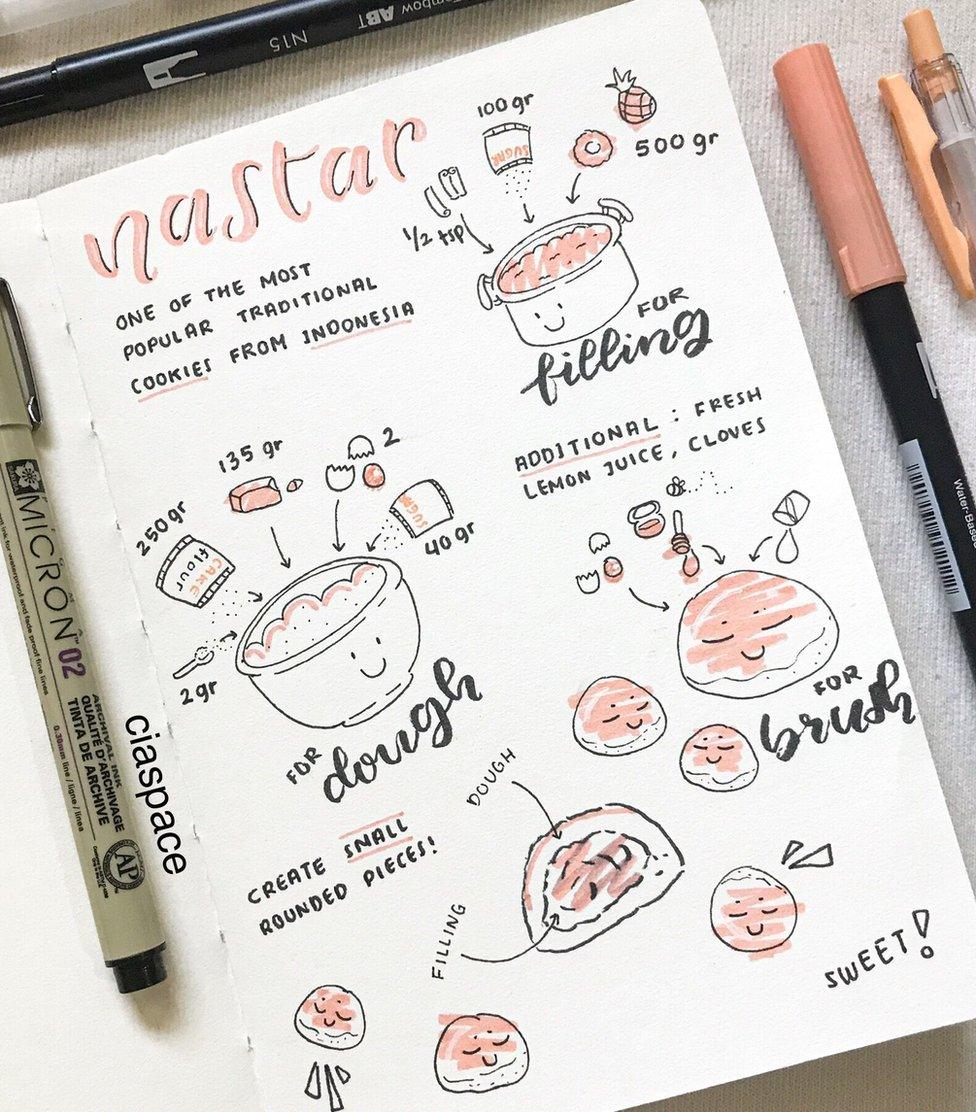 Tombow ABT
N15
nastar
ONE OF THE MOST
POPULAR TRADITIONAL
COOKIES FROM INDONESIA
100 gr
SUGAR
500 gr
1/2 tsp
FOR
filling
ADDITIONAL : FRESH
LEMON JUICE, CLOVES
135 gr
2
250 gr
CAKE
flour
SUGAR
40 gr
2 gr
FOR
dough
FOR
brush
CREATE SMALL
ROUNDED PIECES!
DOUGH
FILLING
SWEET!
MICRON 02
ARCHIVAL INK
QUALITÉ D'ARCHIVAGE
TINTA DE ARCHIVE
0.30mm line / ligne / línea
AP
ciaspace
Water-Based